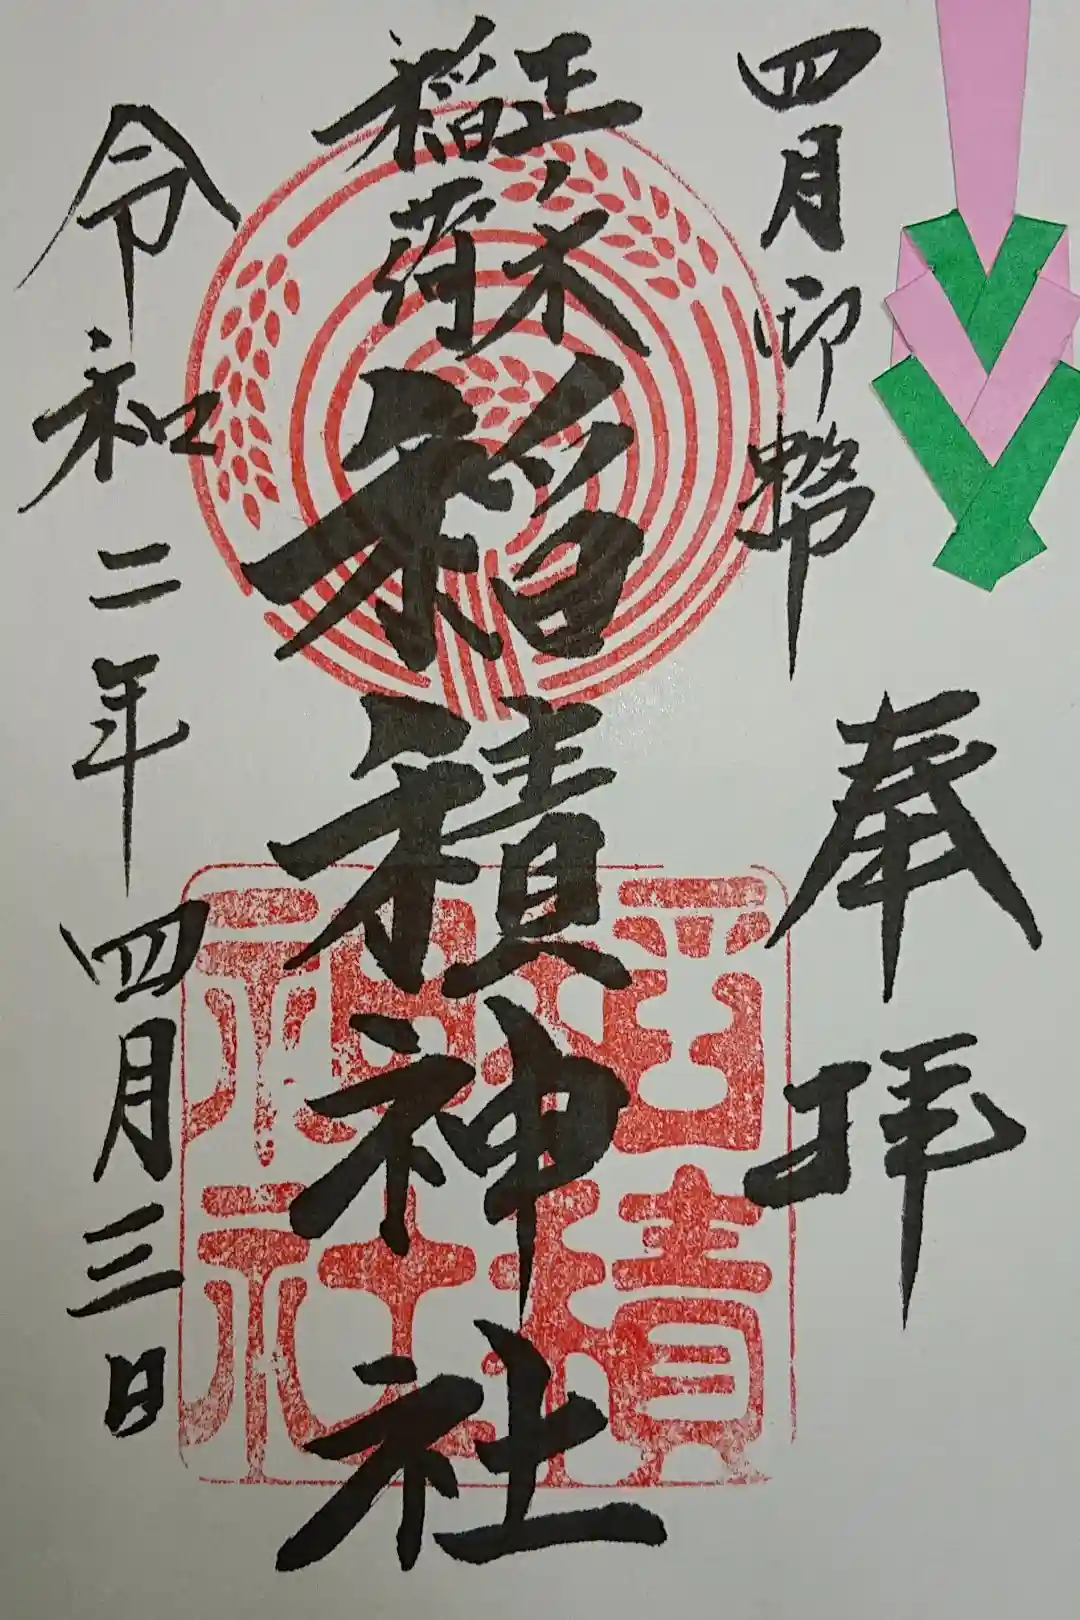 四月御幣
奉拝
正ノ木
稲荷
稲積神社
稲積
神社
令和二年四月三日